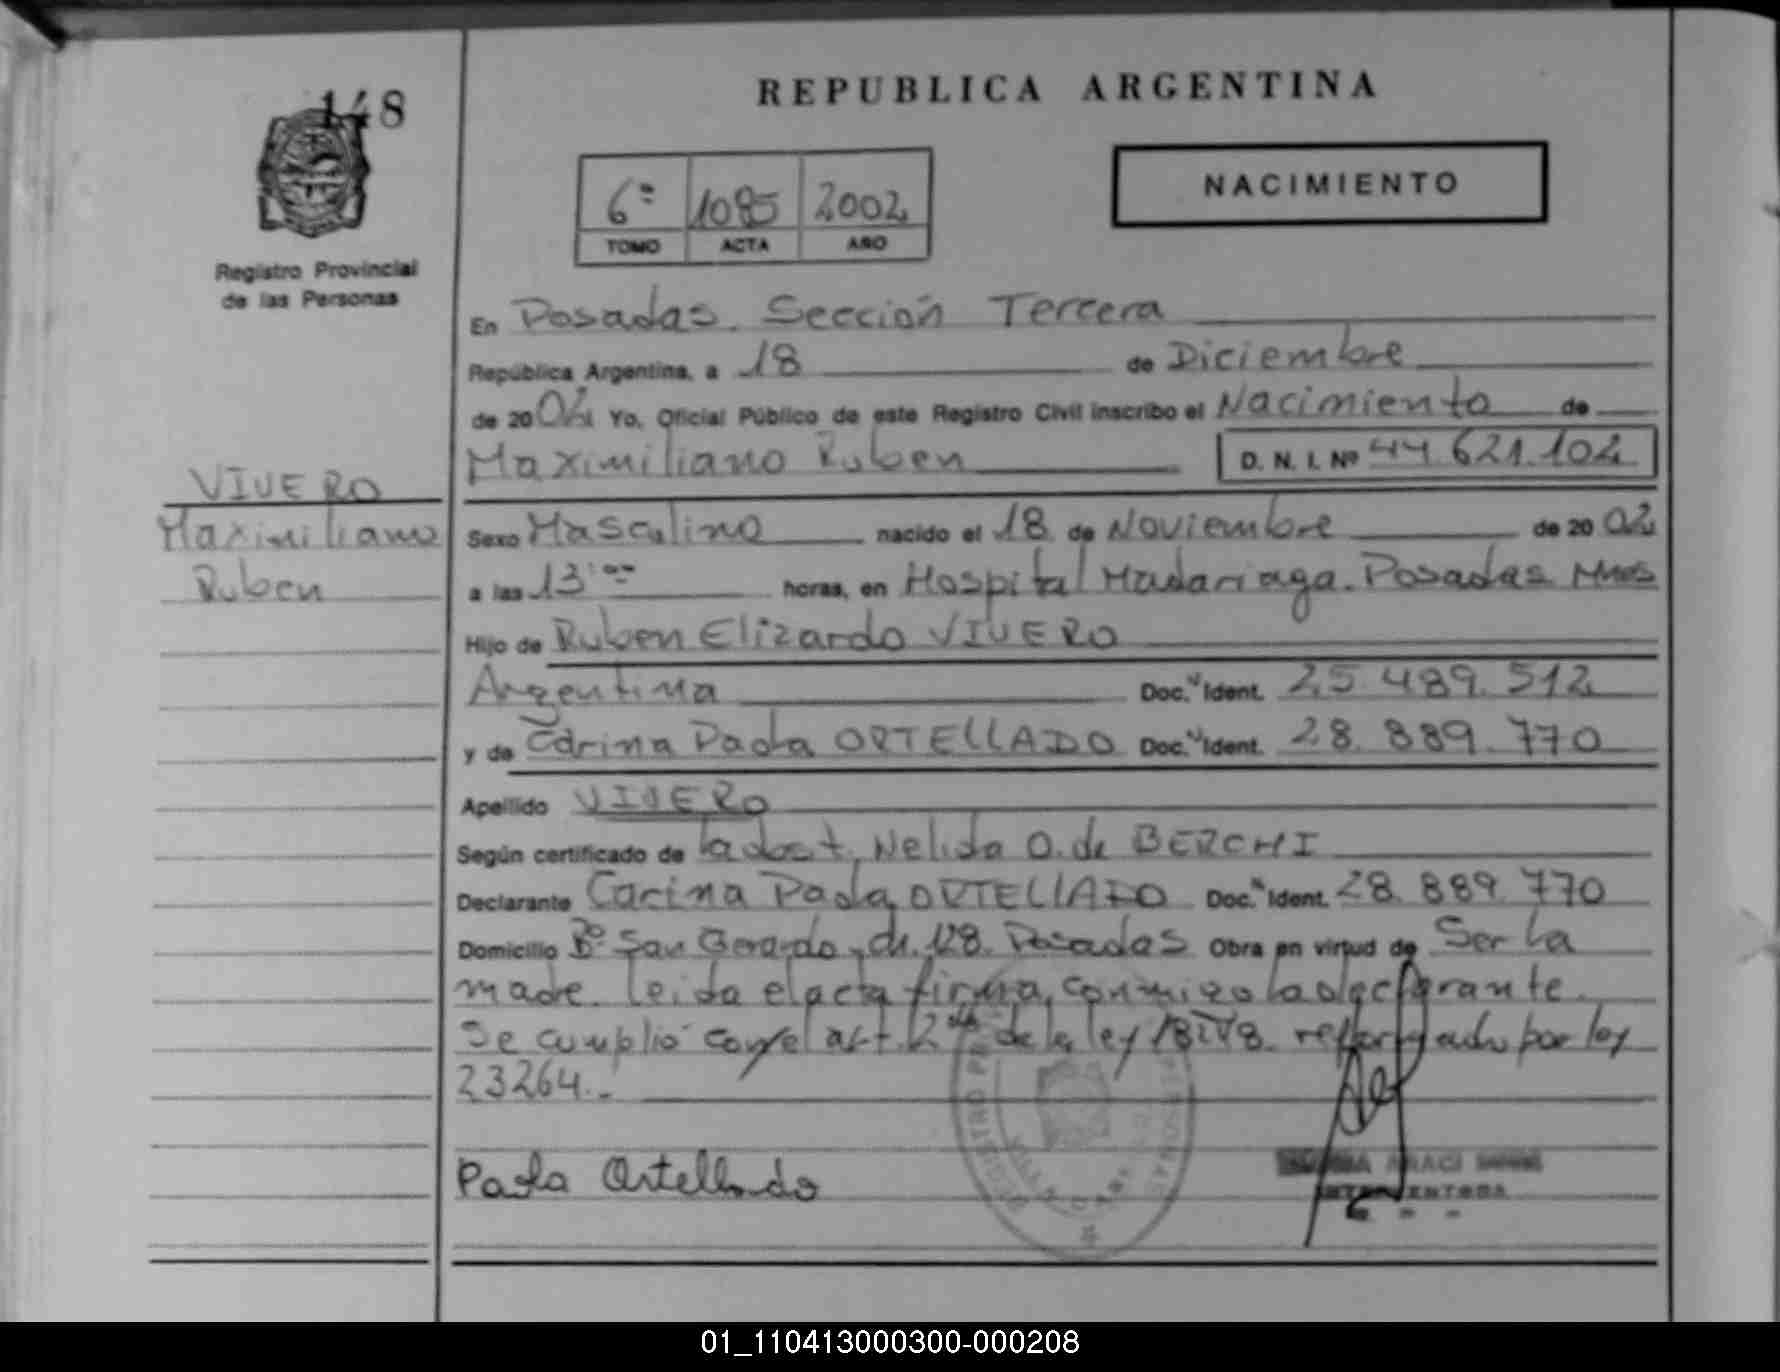 148
REPUBLICA ARGENTINA
NACIMIENTO
6º 1085 2002
TOMO ACTA AÑO
Registro Provincial
de las Personas
En Posadas. Sección Tercera
República Argentina, a 18 de Diciembre
de 2002 Yo, Oficial Público de este Registro Civil inscribo el Nacimiento de
Maximiliano Ruben D. N. I. Nº 44.621.102
VIVERO
Maximiliano
Ruben
Sexo Masculino nacido el 18 de Noviembre de 2002
a las 13:00 horas, en Hospital Madariaga. Posadas Mnes
Hijo de Ruben Elizardo VIVERO
Argentina Doc. Ident. 25.489.512
y de Carina Paola ORTELLADO Doc. Ident. 28.889.770
Apellido VIVERO
Según certificado de la obst. Nelida O. de BERCHI
Declarante Carina Paola ORTELLADO Doc. Ident. 28.889.770
Domicilio Bº San Gerardo, ch. 128. Posadas Obra en virtud de Ser la
madre. leida el acta firma, conmigo la declarante.
Se cumplió con el art. 2 de la ley 18248 reformado por ley
23264.-
Paola Ortellado
ARACI
INTERVENTORA
01_110413000300-000208